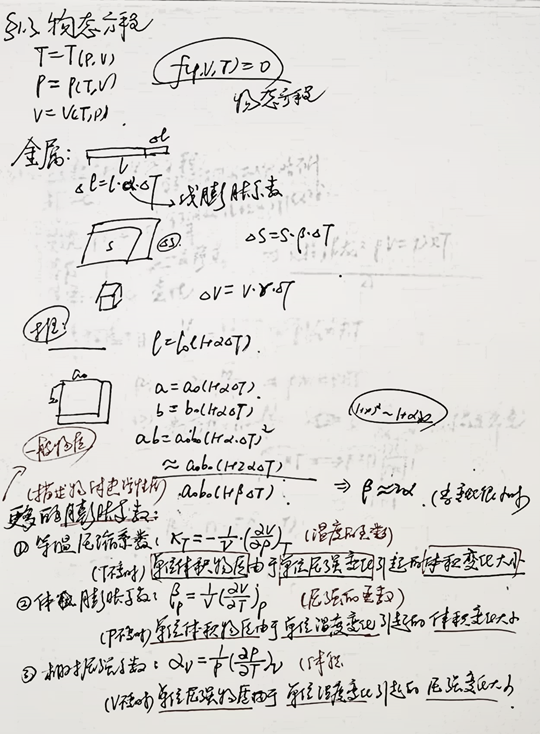 §1.3 物态方程
T=T(P,V)
P=P(T,V)
V=V(T,P)
f(P,V,T)=0
物态方程
金属:
Δl
l
Δl=l·α·ΔT
线膨胀系数
S
ΔS
ΔS=S·β·ΔT
ΔV=V·γ·ΔT
推:
l=l₀(1+αΔT)
a₀
b₀
a=a₀(1+αΔT)
b=b₀(1+αΔT)
ab=a₀b₀(1+α·ΔT)²
≈a₀b₀(1+2αΔT)
a₀b₀(1+βΔT)
⇒ β≈2α (当
一般物质
(描述物
的膨胀系数:
① 等温压缩系数: κ_T=-1/V(∂V/∂P)_T (温度的函数)
(T不变时)单位体积物质由于单位压强变化引起的体积变化大小
② 体积膨胀系数: β_P=1/V(∂V/∂T)_P (压强的函数)
(P不变时)单位体积物质由于单位温度变化引起的体积变化大小
③ 相对压强系数: α_V=1/P(∂P/∂T)_V (体积
(V不变时)单位压强物质由于单位温度变化引起的压强变化大小